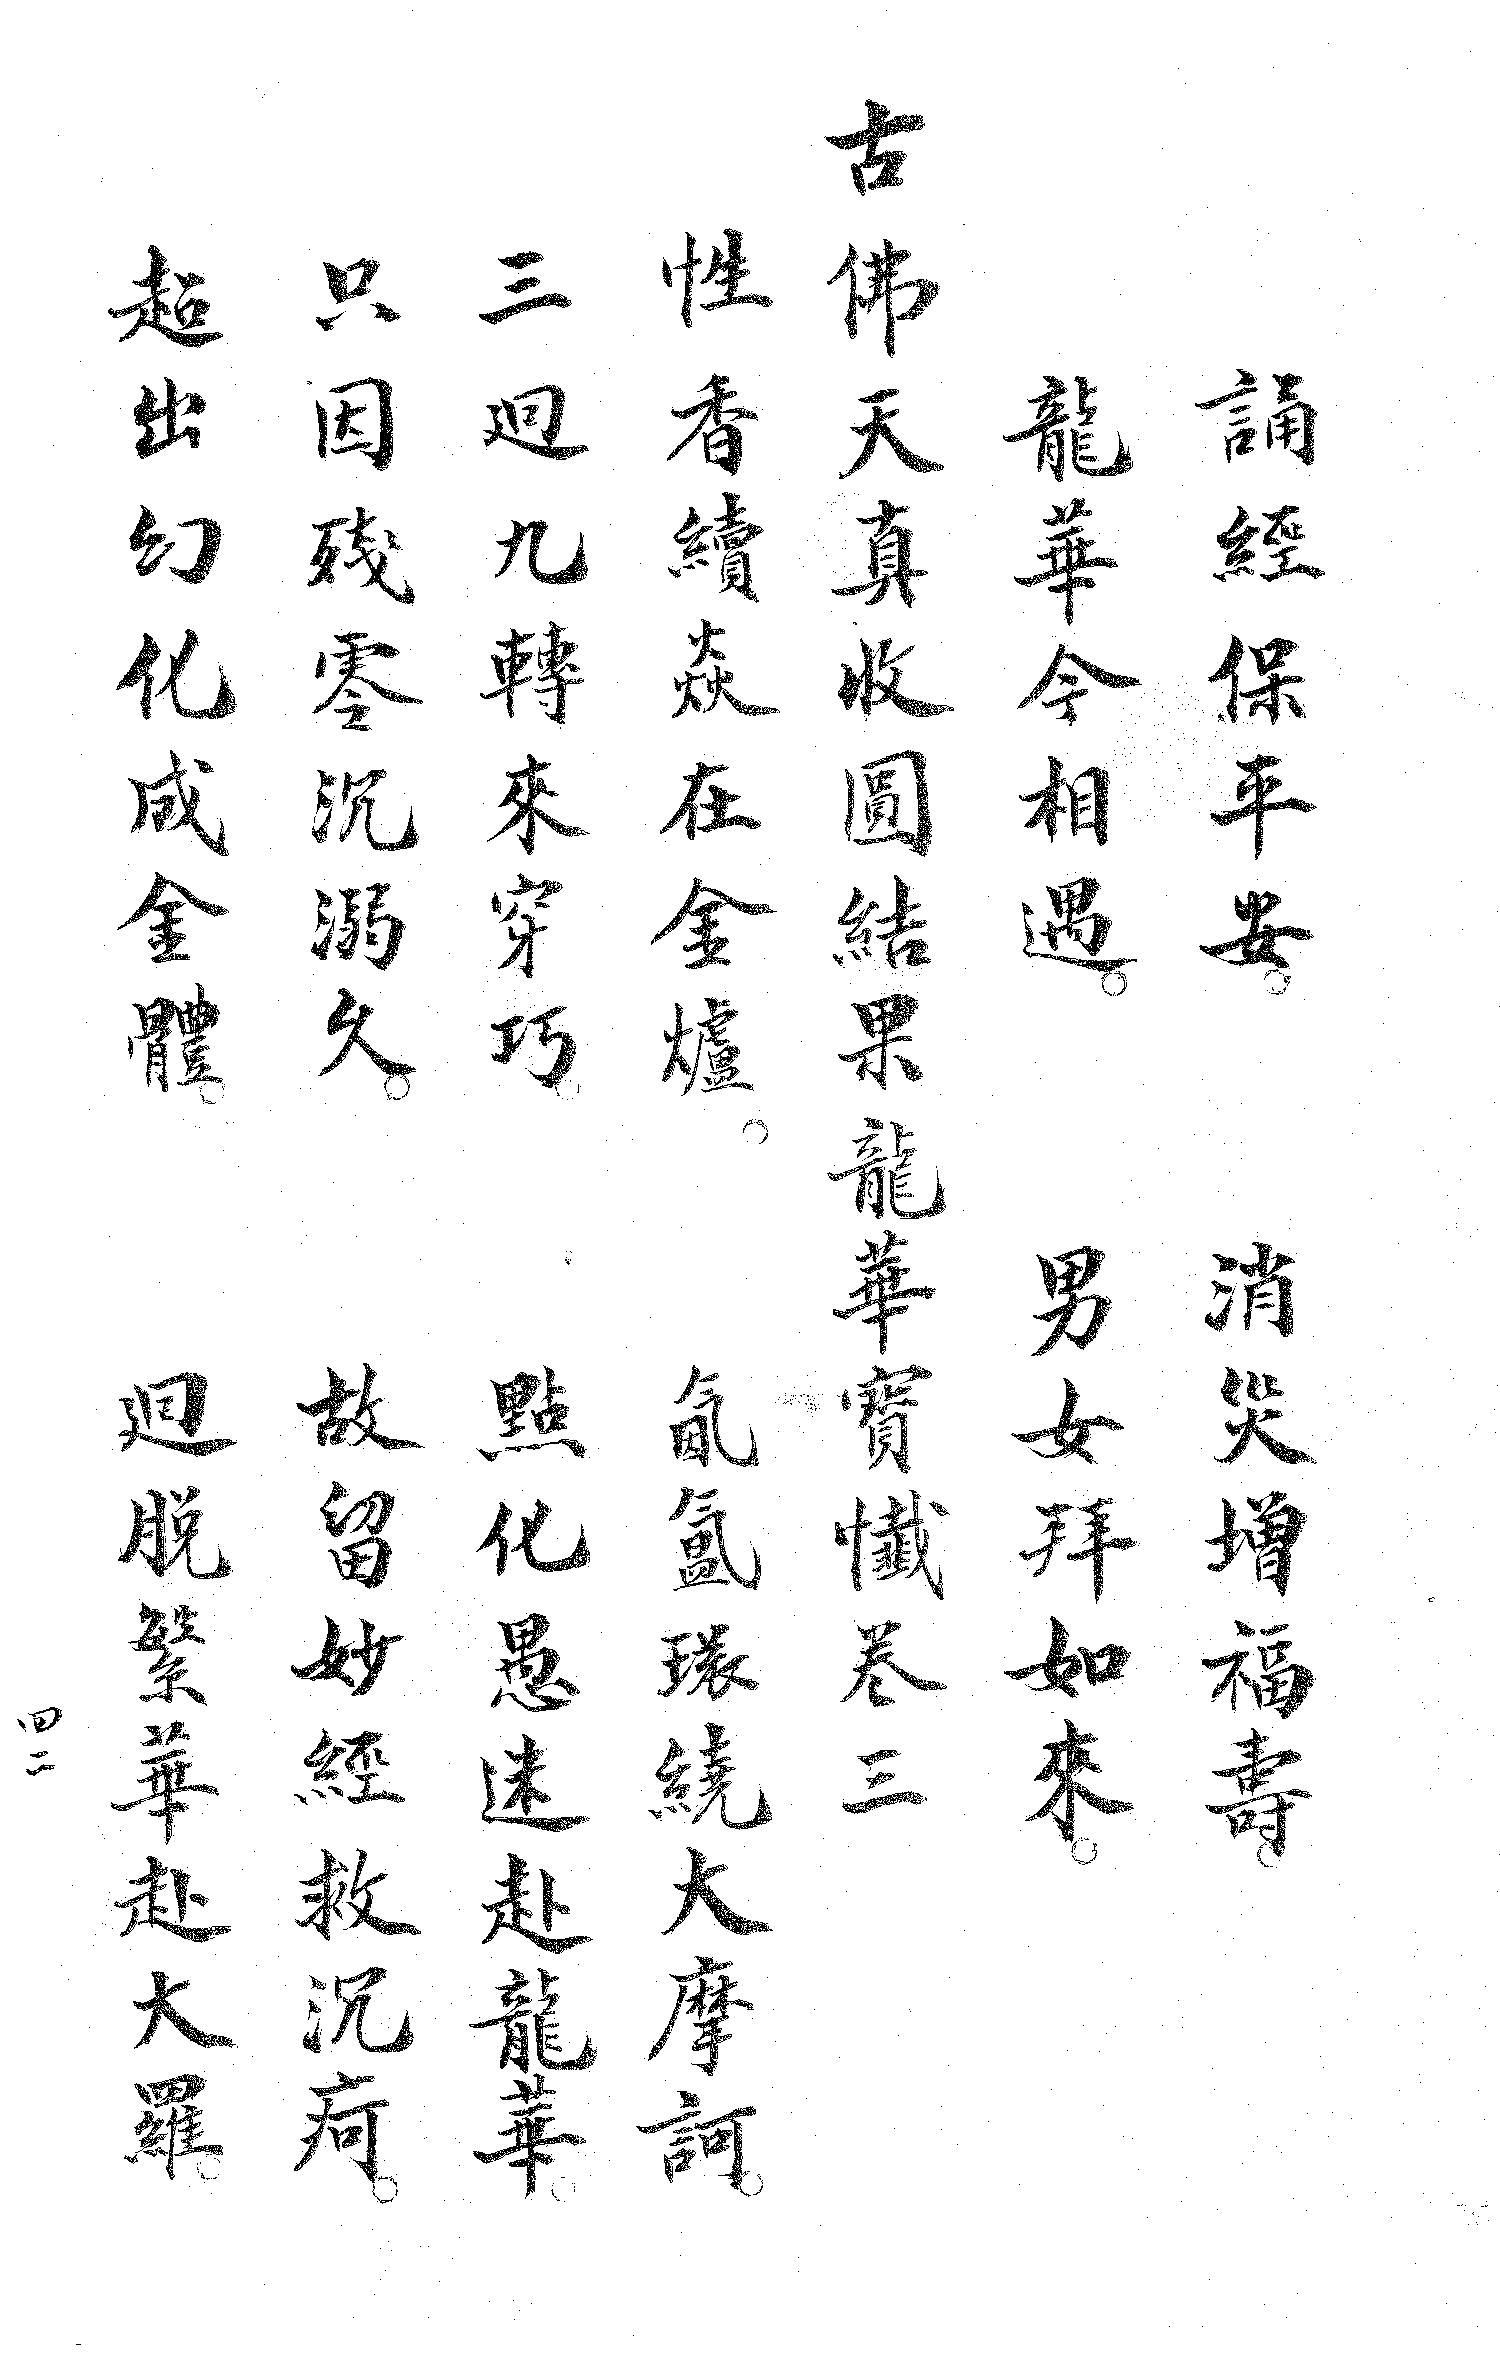 誦經保平安。　消災增福壽。
龍華今相遇。　男女拜如來。
古佛天真收圓結果龍華寶懺卷三
性香續焱在金爐。　氤氳環繞大摩訶。
三迴九轉來穿巧。　點化愚迷赴龍華。
只因殘零沉溺久。　故留妙經救沉疴。
超出幻化成金體。　迴脫繁華赴大羅。
四二